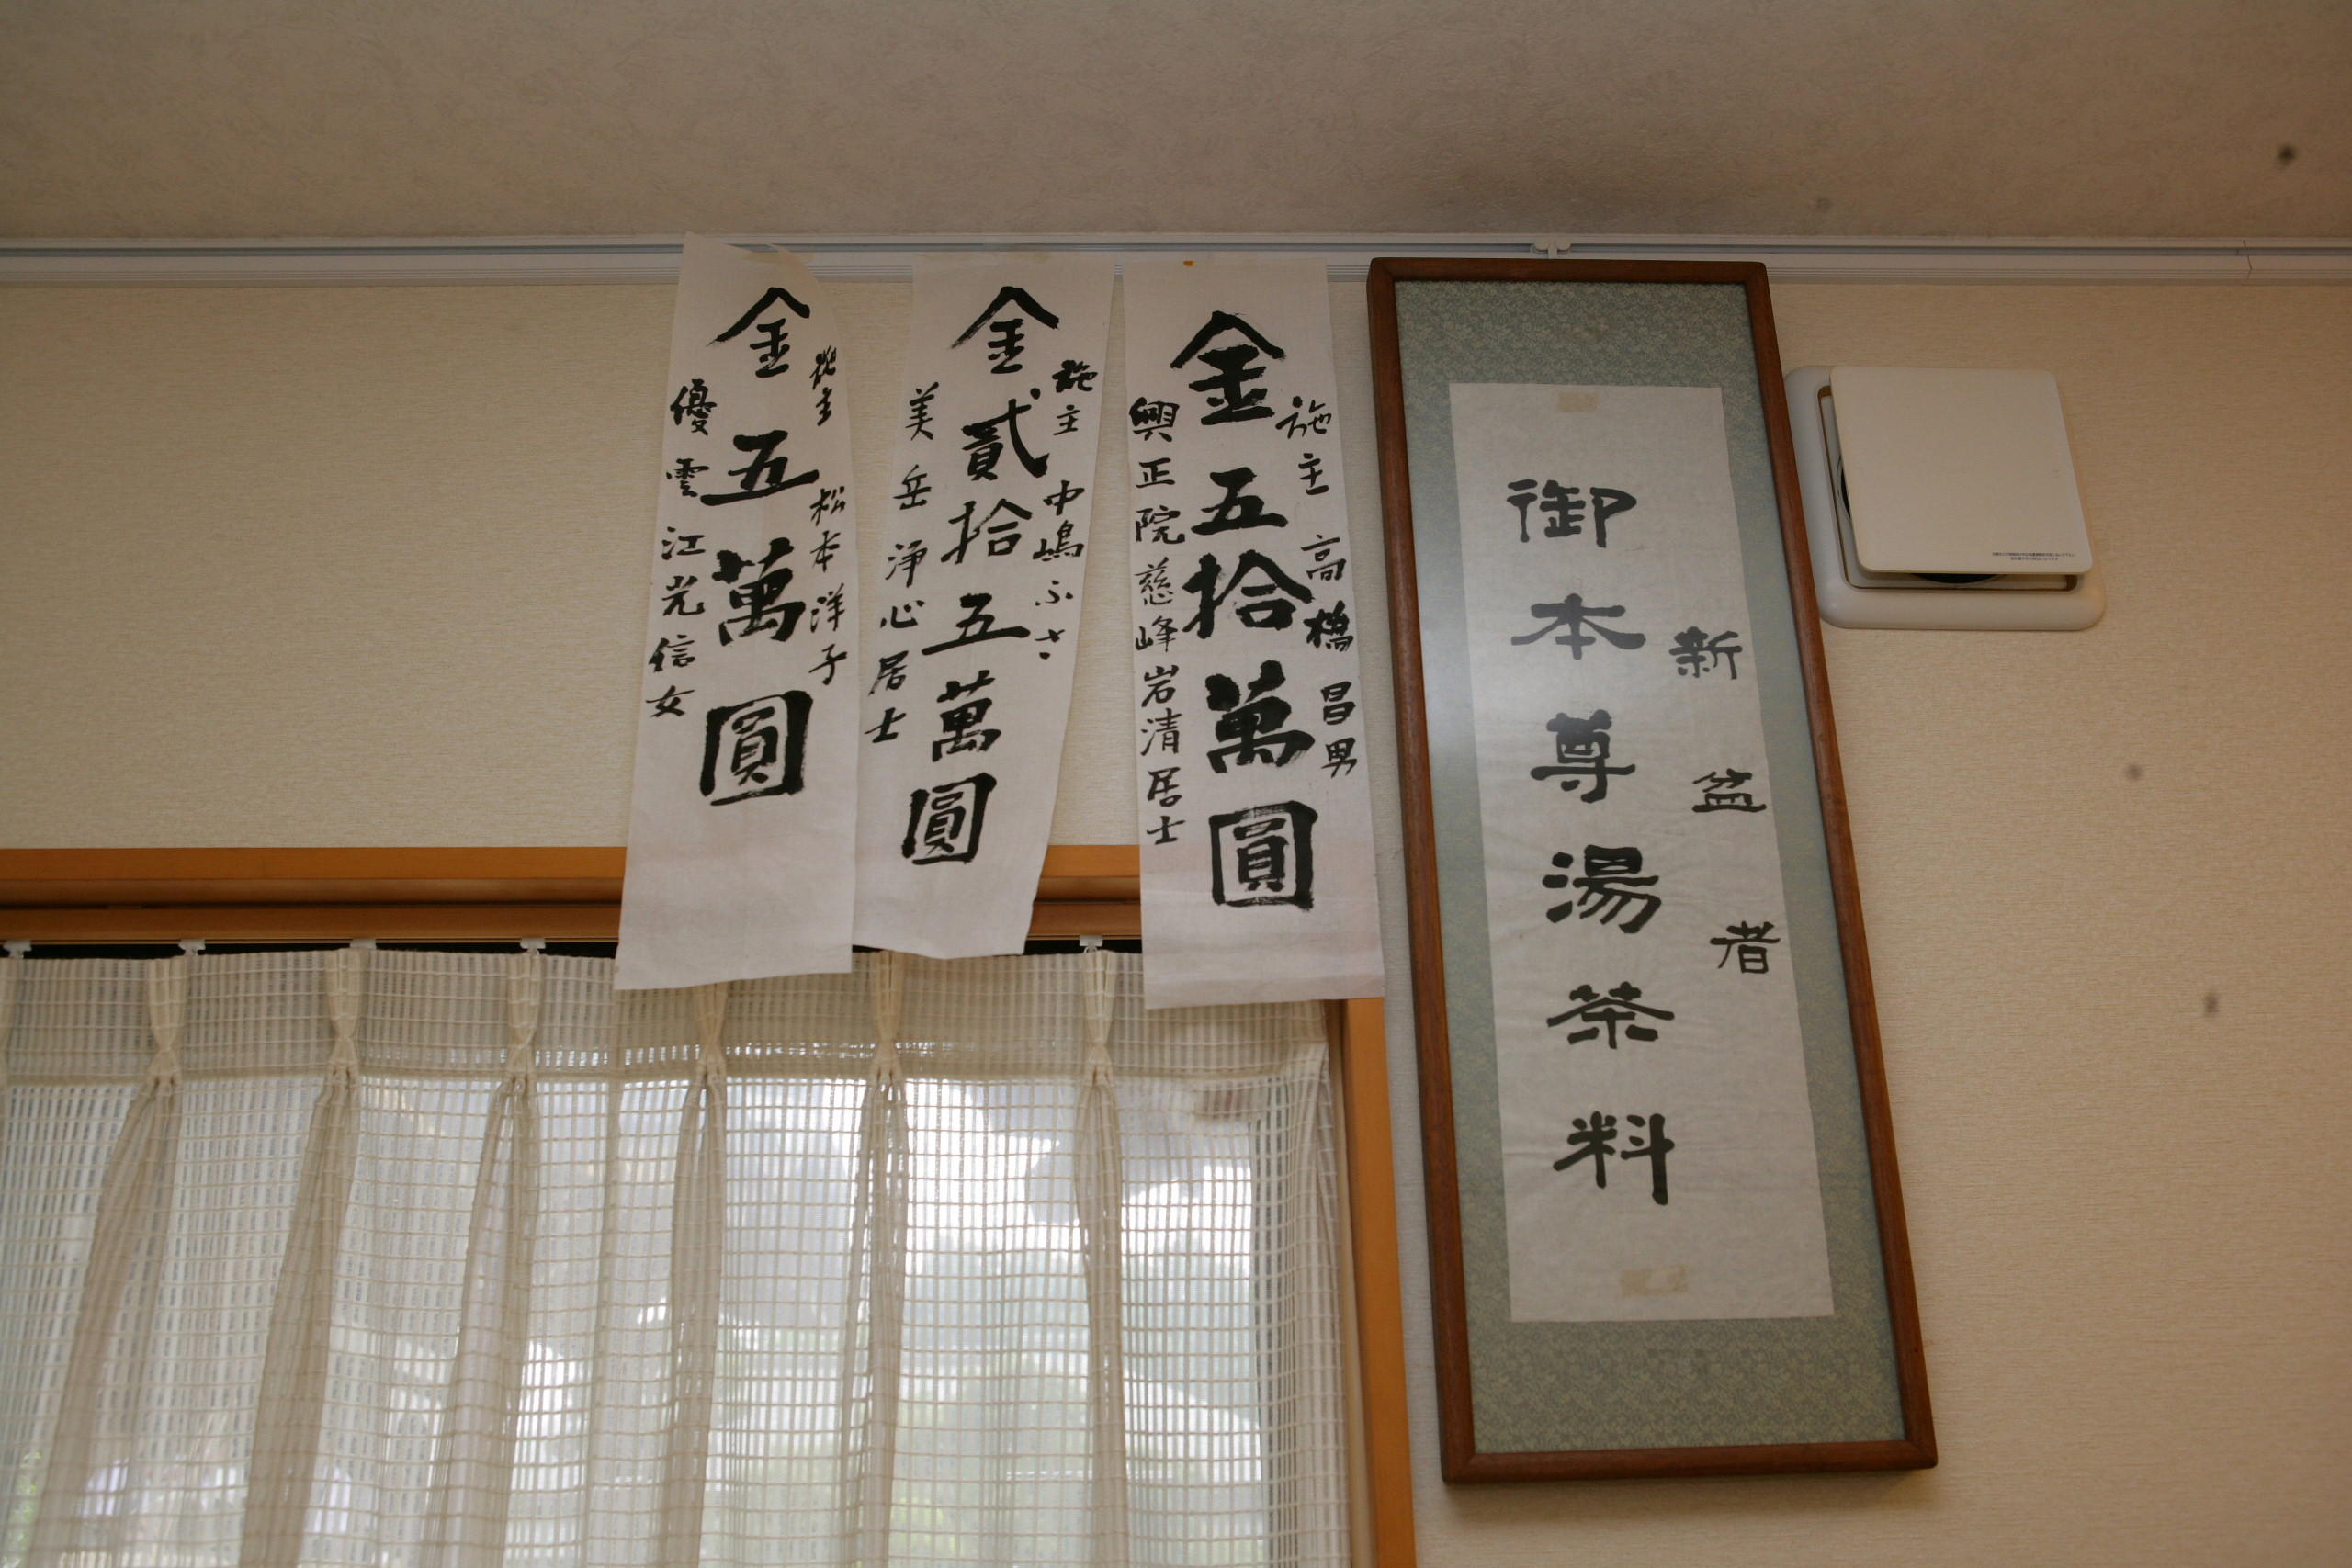 新盆者
御本尊湯茶料
施主 高橋昌男
金五拾萬圓
興正院慈峰岩清居士
施主 中嶋ふさ
金貳拾五萬圓
美岳浄心居士
施主 松本洋子
金五萬圓
優雲江光信女